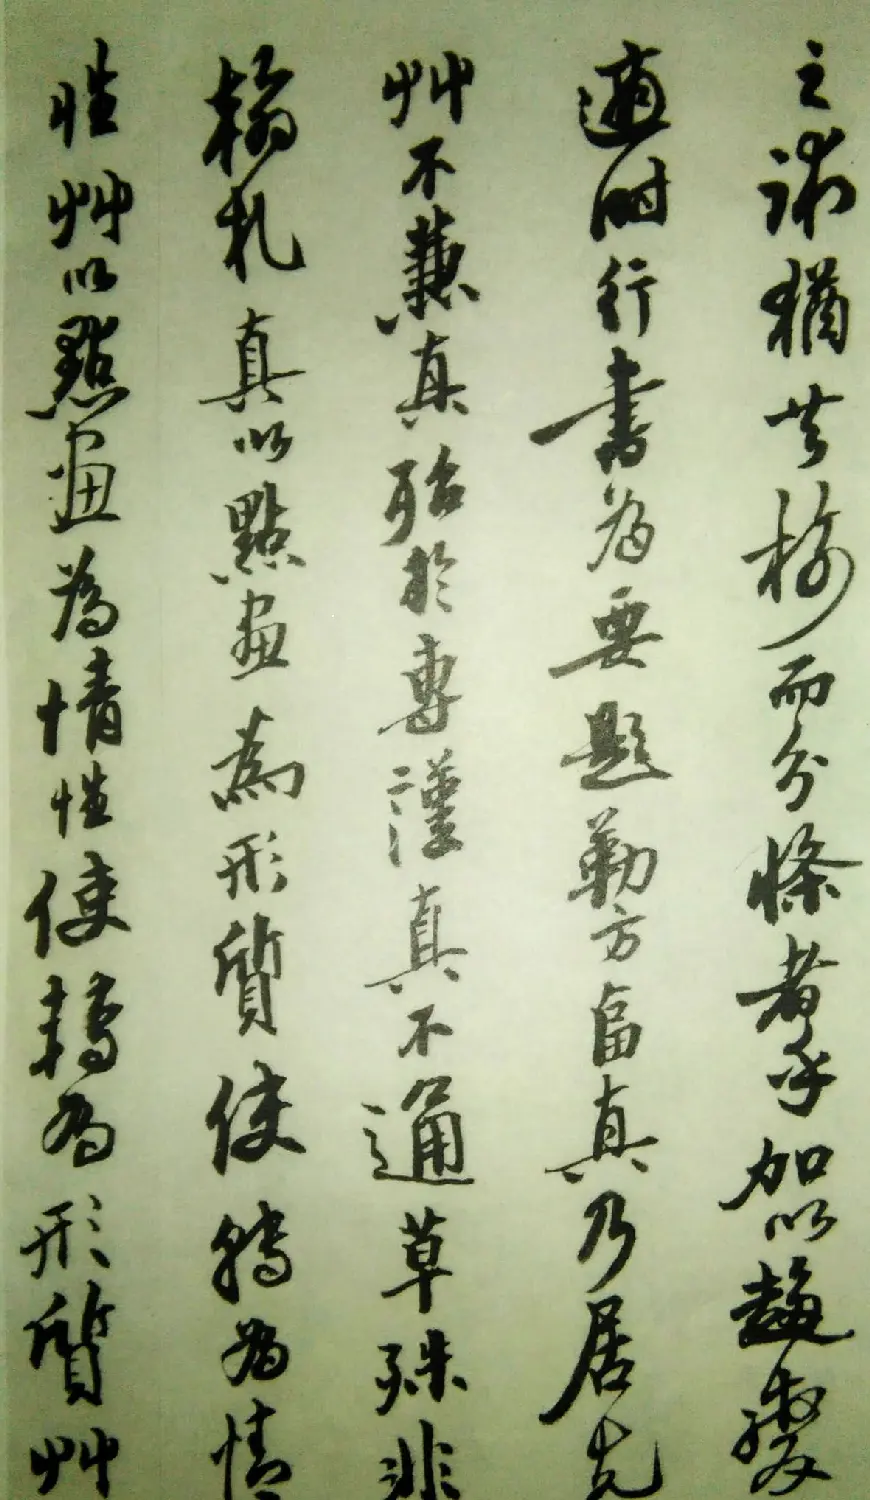 之謡猶共樹而分條者乎加以趨變
適時行書為要題勒方畐真乃居先
艸不兼真殆於專謹真不通草殊非
翰札真以點畫為形質使轉為情
性艸以點畫為情性使轉為形質艸